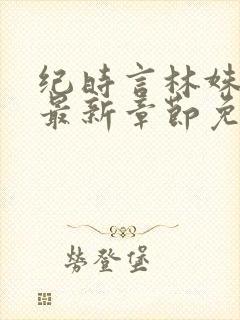 纪时言林妹
最新章节免
劳登堡